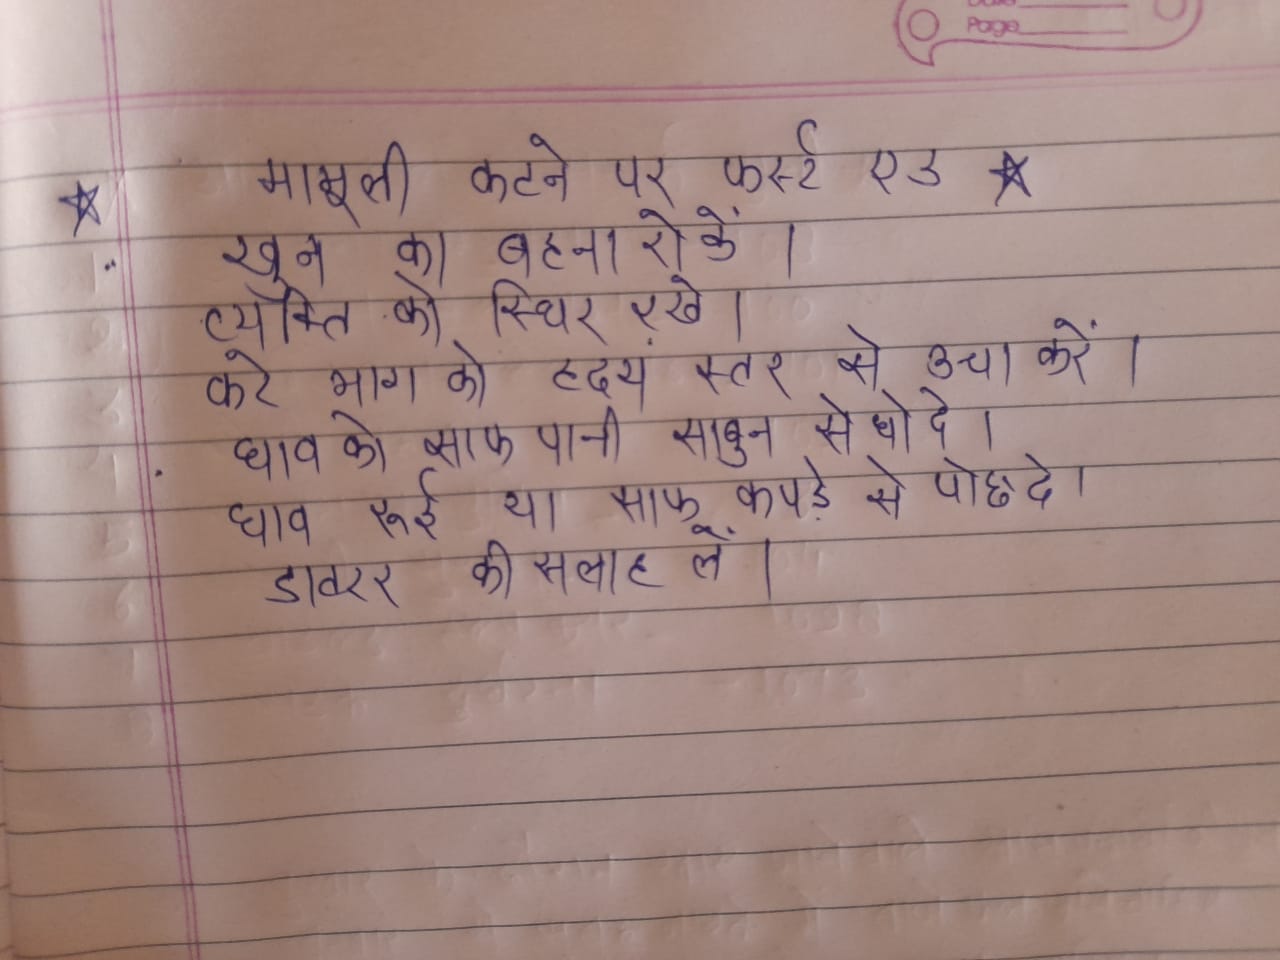 Page
☆ मामूली कटने पर फर्स्ट एड ☆
खून का बहना रोकें ।
व्यक्ति को स्थिर रखे ।
कटे भाग को ह्दय स्तर से उचा करें ।
घाव को साफ पानी साबुन से धो दे ।
घाव रूई या साफ कपड़े से पोछ दे ।
डाक्टर की सलाह लें ।